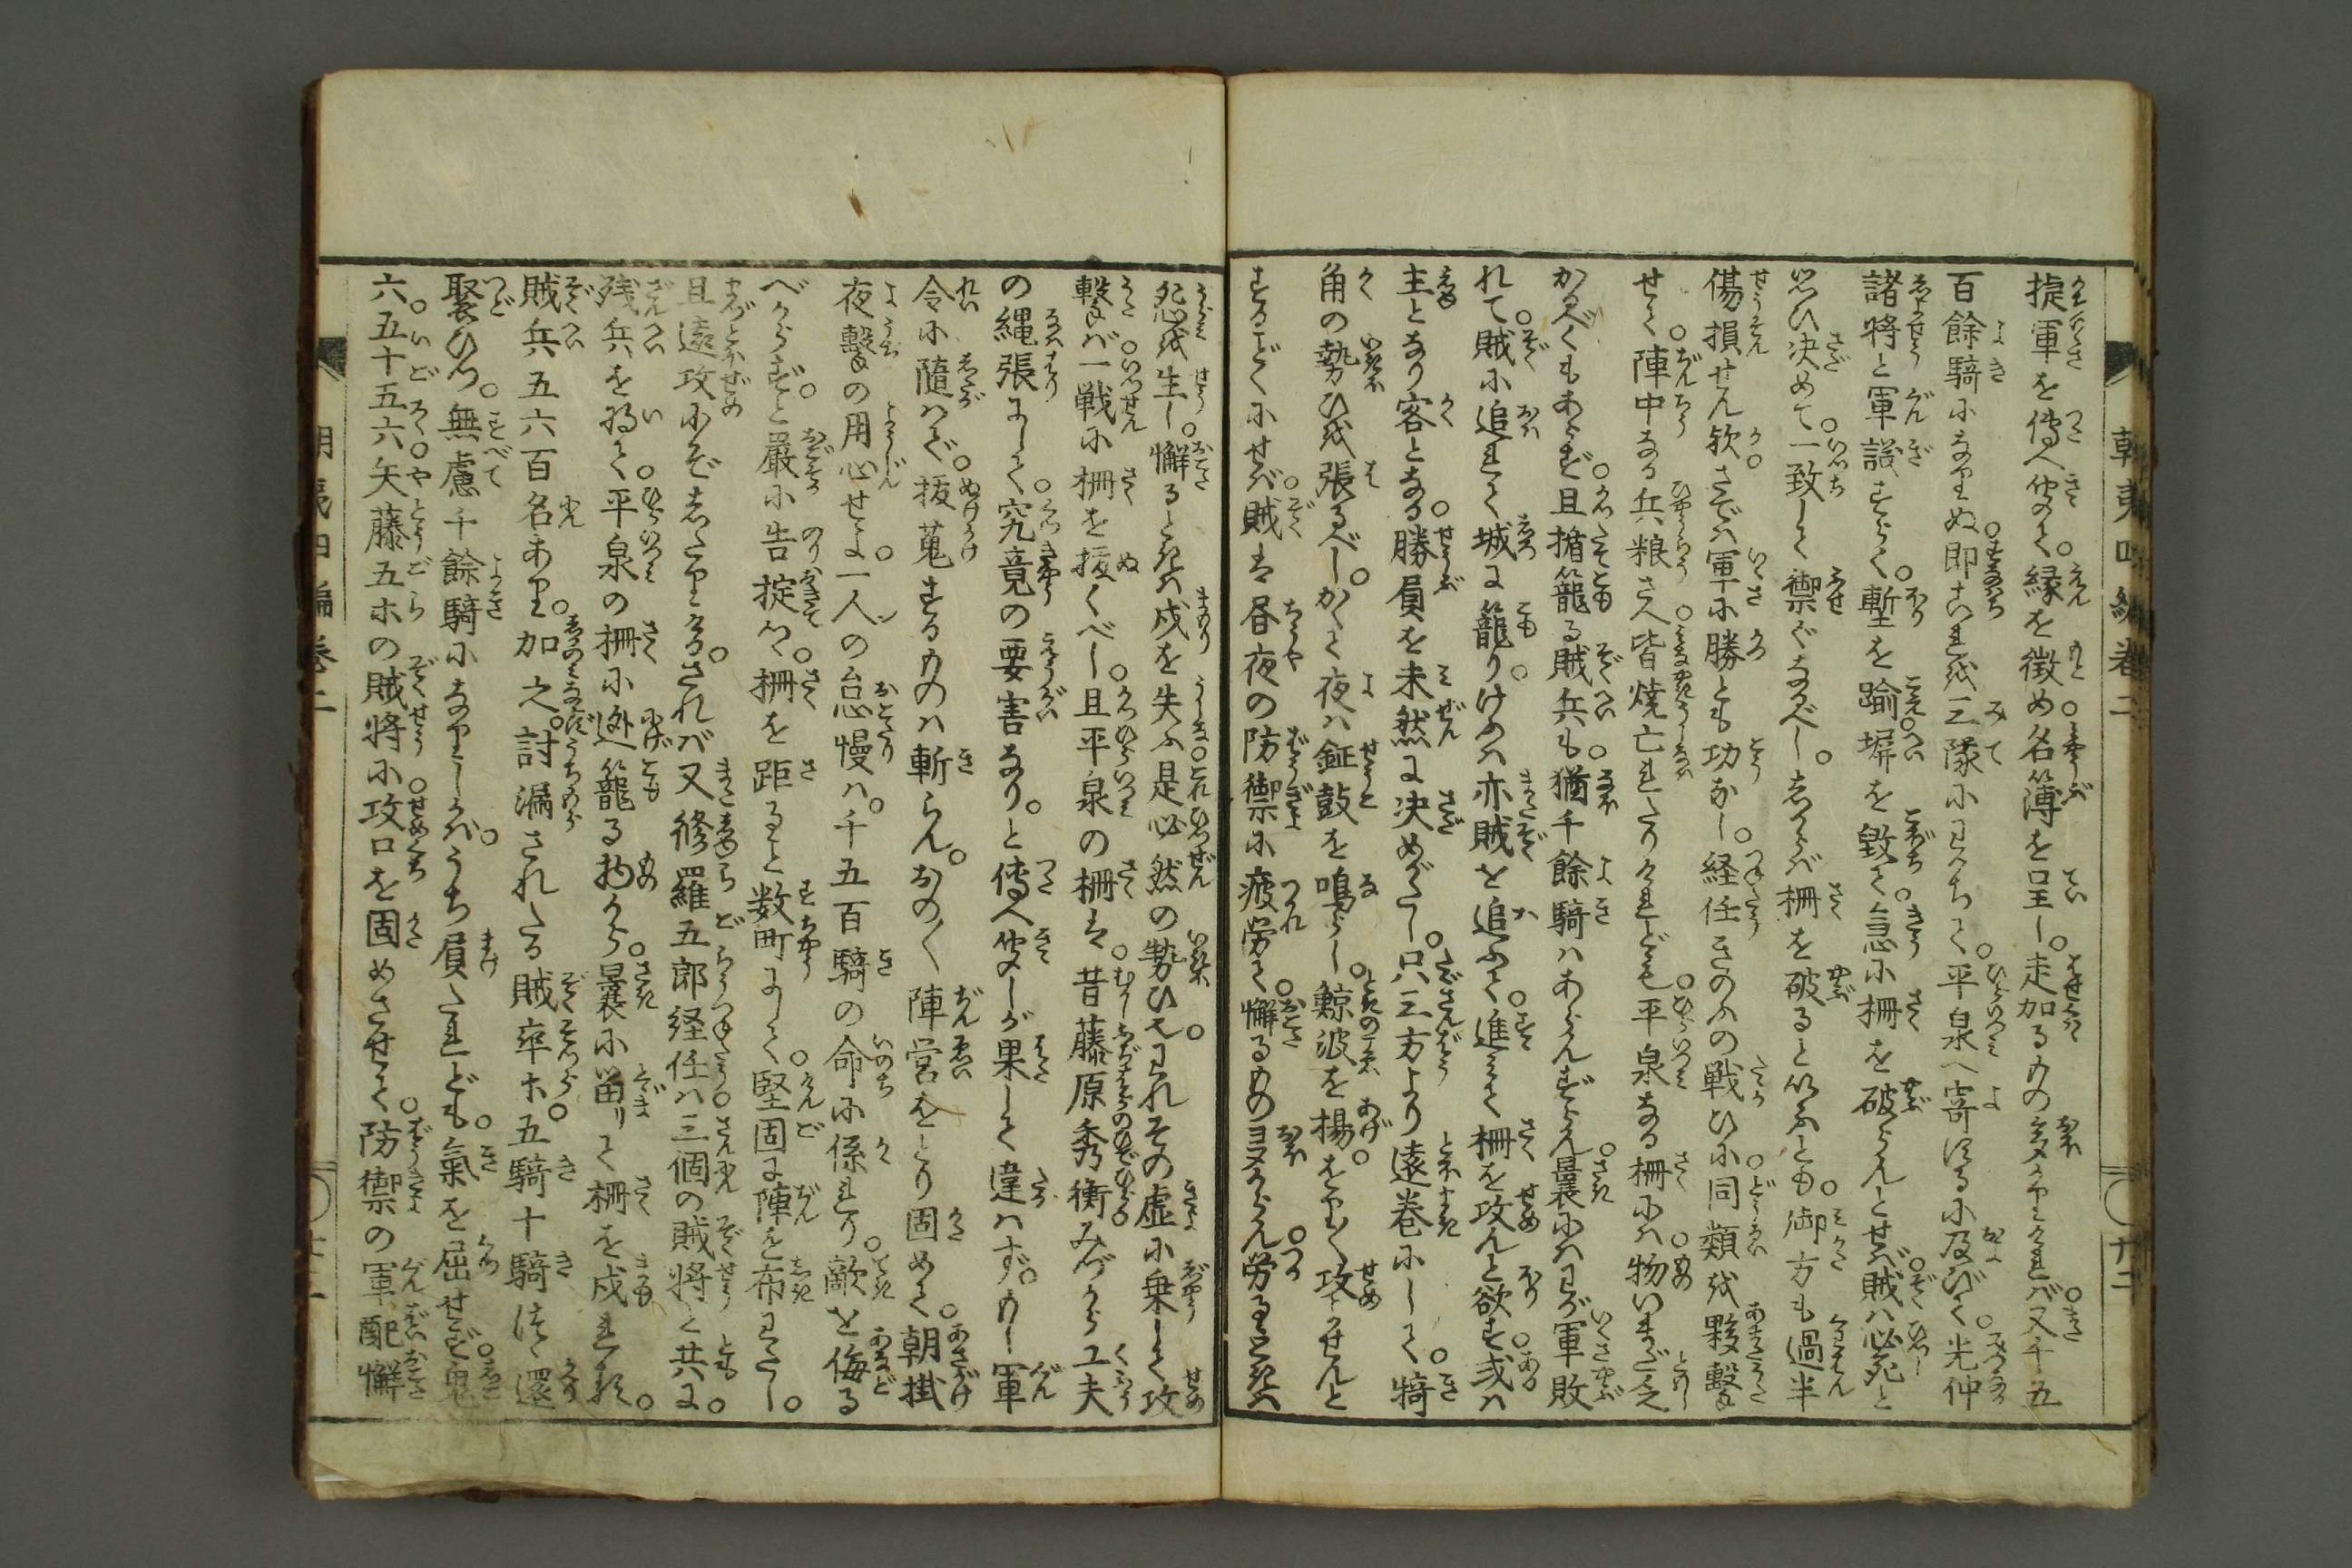 朝夷四編巻二
捷軍を傳へ聞て。縁を徴め名簿を呈し。走加るもの多かりければ。又千五
百餘騎になりぬ。即これを三隊にわかちて。平泉へ寄する に及びて。光仲
諸將と軍議すらく。塹を踰。塀を毀て。急に柵を破らんとせば。賊は必死と
思ひ决めて。一致して禦ぐなるべし。しからば柵を破ると いふとも。御方も過半
傷損せん歟。さでは軍に勝とも功なし。経任きのふの戦ひに。同類を夥撃
せて。陣中なる兵粮さへ皆焼亡れたりけれども。平泉なる柵には。物いまだ乏
かるべくもあらず。且楯籠る賊兵も。猶千餘騎はあらんずらん。曩にはわが軍敗
れて。賊に追れて城に籠り。けふは亦賊を追ふて。進みて柵を攻んと欲す。或は
主となり客となる。勝負を未然に决めがたし。只三方より遠巻にして。犄
角の勢ひを張るべし。かくて夜は鉦鼓を鳴らし。鯨波を揚。をり〳〵攻よせんと
することくにせば。賊は昼夜の防禦に疲労て。懈るもの多からん。労るときは
怨を生し。懈るときは戍を失ふ。是必然の勢ひ也。われその虚に乗して攻
撃ば。一戦に柵を抜くべし。且平泉の柵は。昔藤原秀衡みづから工夫
の縄張にして。究竟の要害なり。と傳へ聞しが果して違はず。もし軍
令に隨はで。抜蒐するものは斬らん。おの〳〵陣営をとり固めて。朝掛
夜撃の用心せよ。一人の怠慢は。千五百騎の命に係れり。敵を侮る
べからず。と嚴に告掟つゝ。柵を距ると数町にして。堅固に陣を布わたし。
且遠攻にぞしたりける。されば又修羅五郎経任は。三個の賊將と共に。
残兵を將て。平泉の柵に迯籠る物から。曩に畄りて柵を戍れる。
賊兵五六百名あり。加之。討漏されたる賊卒ホ。五騎十騎づゝ還
聚ひつ。無慮千餘騎になりしかば。うち負たれども。氣を屈せず。鬼
六。五十五六。矢藤五ホの賊將に。攻口を固めさせて。防禦の軍配懈
朝夷四編巻二